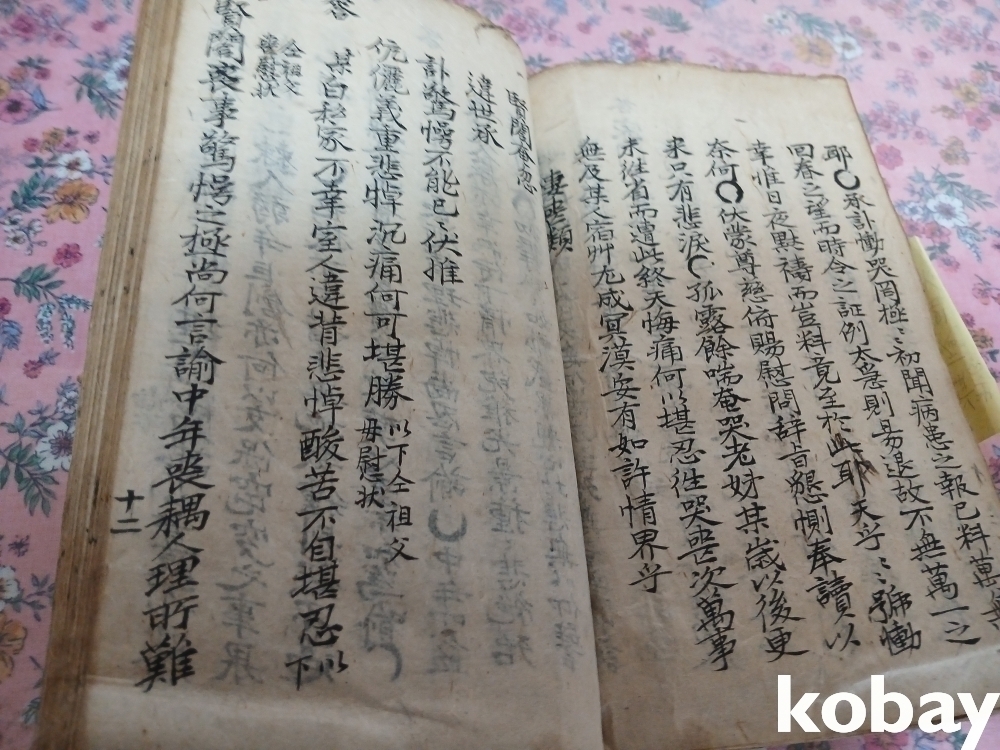 耶○承訃慟哭罔極〻初聞病患之報已料萬無
回春之望而時令之証例太急則易退故不無萬一之
幸惟日夜默禱而豈料竟至於此耶天乎〻號慟
奈何○伏蒙尊慈俯賜慰問辞旨懇惻奉讀以
來只有悲淚○孤露餘喘奄哭老妣某歲以後更
未往省而遭此終天悔痛何以堪忍徃哭喪次萬事
無及某人宿艸尤成冥漠安有如許情界乎
妻喪類
賢閤奄忽
違世承
訃驚愕不能已〻伏惟
伉儷義重悲悼沉痛何可堪勝 以下仝祖父
母慰狀
某白私家不幸室人違背悲悼酸苦不自堪忍 以
下
仝祖父
母慰狀
答
賢閤喪事驚愕之極尚何言諭中年喪耦人理所難
十二
kobay